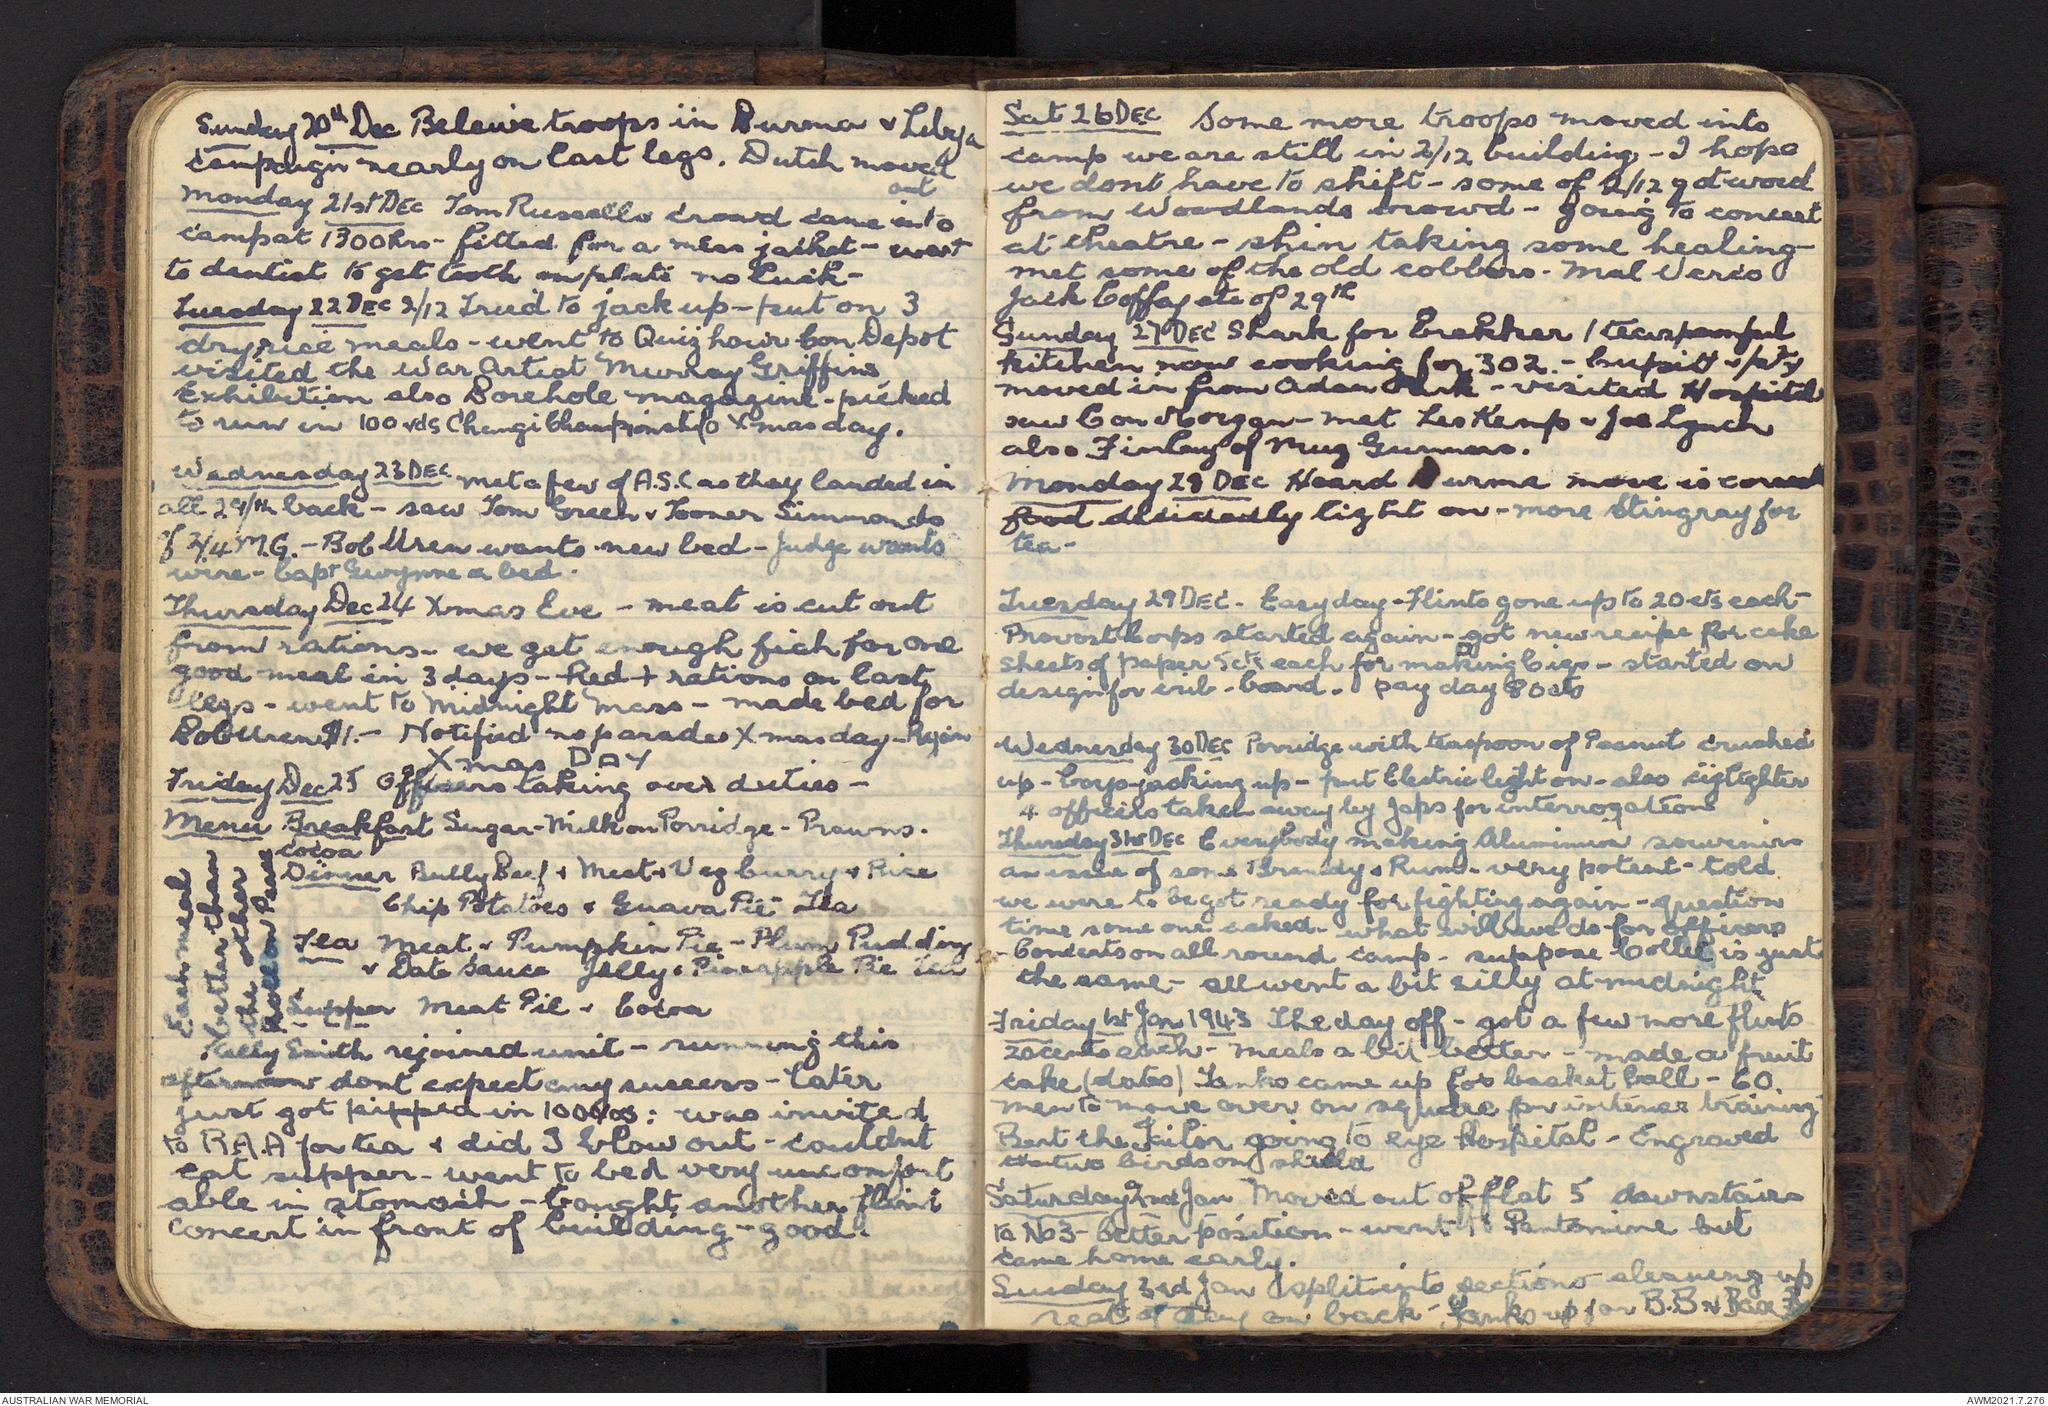 Sunday 20th Dec Beleive troops in Burma & Libya
campaign nearly on last legs. Dutch moved
out
Monday 21st DEC Tom Russells crowd came into
camp at 1300 hrs - fitted for a mess jacket - went
to dentist to get tooth on plate no luck -
Tuesday 22 DEC 2/12 Tried to jack up - put on 3
dry rice meals - went to Con Depot
visited the War Artist Murray Griffins
Exhibition also Borehole magazine - picked
to run in 100 yds Changi Championship Xmas day.
Wednesday 23 DEC met a few of A.S.C as they landed in
all 29/th back - saw Tom Green & Tooner Simmonds
of 2/4 M.G. - Bob Uren wants new bed - Judge wants
wire - Capt Gwynne a bed.
Thursday Dec 24 Xmas Eve - meat is cut out
from rations - we get enough fish for one
good meal in 3 days - Red + rations on last
legs - went to Midnight Mass - made bed for
Bob Uren $1. - Notified no parades Xmas day -
Xmas DAY
Friday Dec 25 Officers taking over duties -
Menu Breakfast Sugar - Milk on Porridge - Prawns.
cocoa
Dinner Bully Beef & Meat & Veg Curry & Rice
Chip Potatoes & Guava Pie Tea
Tea Meat & Pumpkin Pie - Plum Pudding
& Date Sauce Jelly & Pineapple Pie Tea
Supper Meat Pie & Cocoa
Each meal
better than
the other
Kelly Smith rejoined unit - running this
afternoon dont expect any success - Later
just got pipped in 100 yds: was invited
to R.A.A for tea & did I blow out - couldnt
eat supper - went to bed very uncomfort
able in stomach - bought another flint
concert in front of building - good.
Sat 26 DEC Some more troops moved into
camp we are still in 2/12 building - I hope
we dont have to shift - some of 2/12 got word
from Woodlands crowd - going to concert
at theatre - shin taking some healing -
met some of the old cobbers - Mal Verco
Jack Coffey etc of 29th
Sunday 27 DEC Shark for brekker 1 teaspoonful
kitchen now cooking for 302. - & pty
moved in from Adam Park - visited Hospital
saw Con Morgan - met Les Kemp & Joe Lynch
also Finlay of Mug Gunners.
Monday 28 DEC Heard Burma move is correct
food decidedly light on - more Stingray for
tea -
Tuesday 29 DEC. Easy day - Flints gone up to 20 cts each -
Provost Corps started again - got new recipe for cake
sheets of paper 5 cts each for making cigs - started on
design for crib - board. pay day 80 cts
Wednesday 30 DEC Porridge with teaspoon of Peanut crushed
up - boys jacking up - put Electric light on - also ciglighter
4 officers taken away by Japs for interrogation
Thursday 31st DEC Everybody making Aluminium souvenirs
an issue of some Brandy & Rum - very potent - told
we were to be got ready for fighting again - question
time some one asked - what will we do for officers
- Concerts on all round camp - suppose Collie is just
the same - all went a bit silly at midnight
Friday 1st Jan 1943 The day off - got a few more flints
20 cents each - meals a bit better - made a fruit
cake (dates) Yanks came up for basket ball - 60.
men to move over on square for intense training
Bert the Tailor going to eye Hospital - Engraved
two birds on shield
Saturday 2nd Jan Moved out of flat 5 downstairs
to No 3 - better position - went to Pantomine but
came home early.
Sunday 3rd Jan split into sections cleaning up
rest of day on back - Yanks up for B.B &
AUSTRALIAN WAR MEMORIAL
AWM2021.7.276